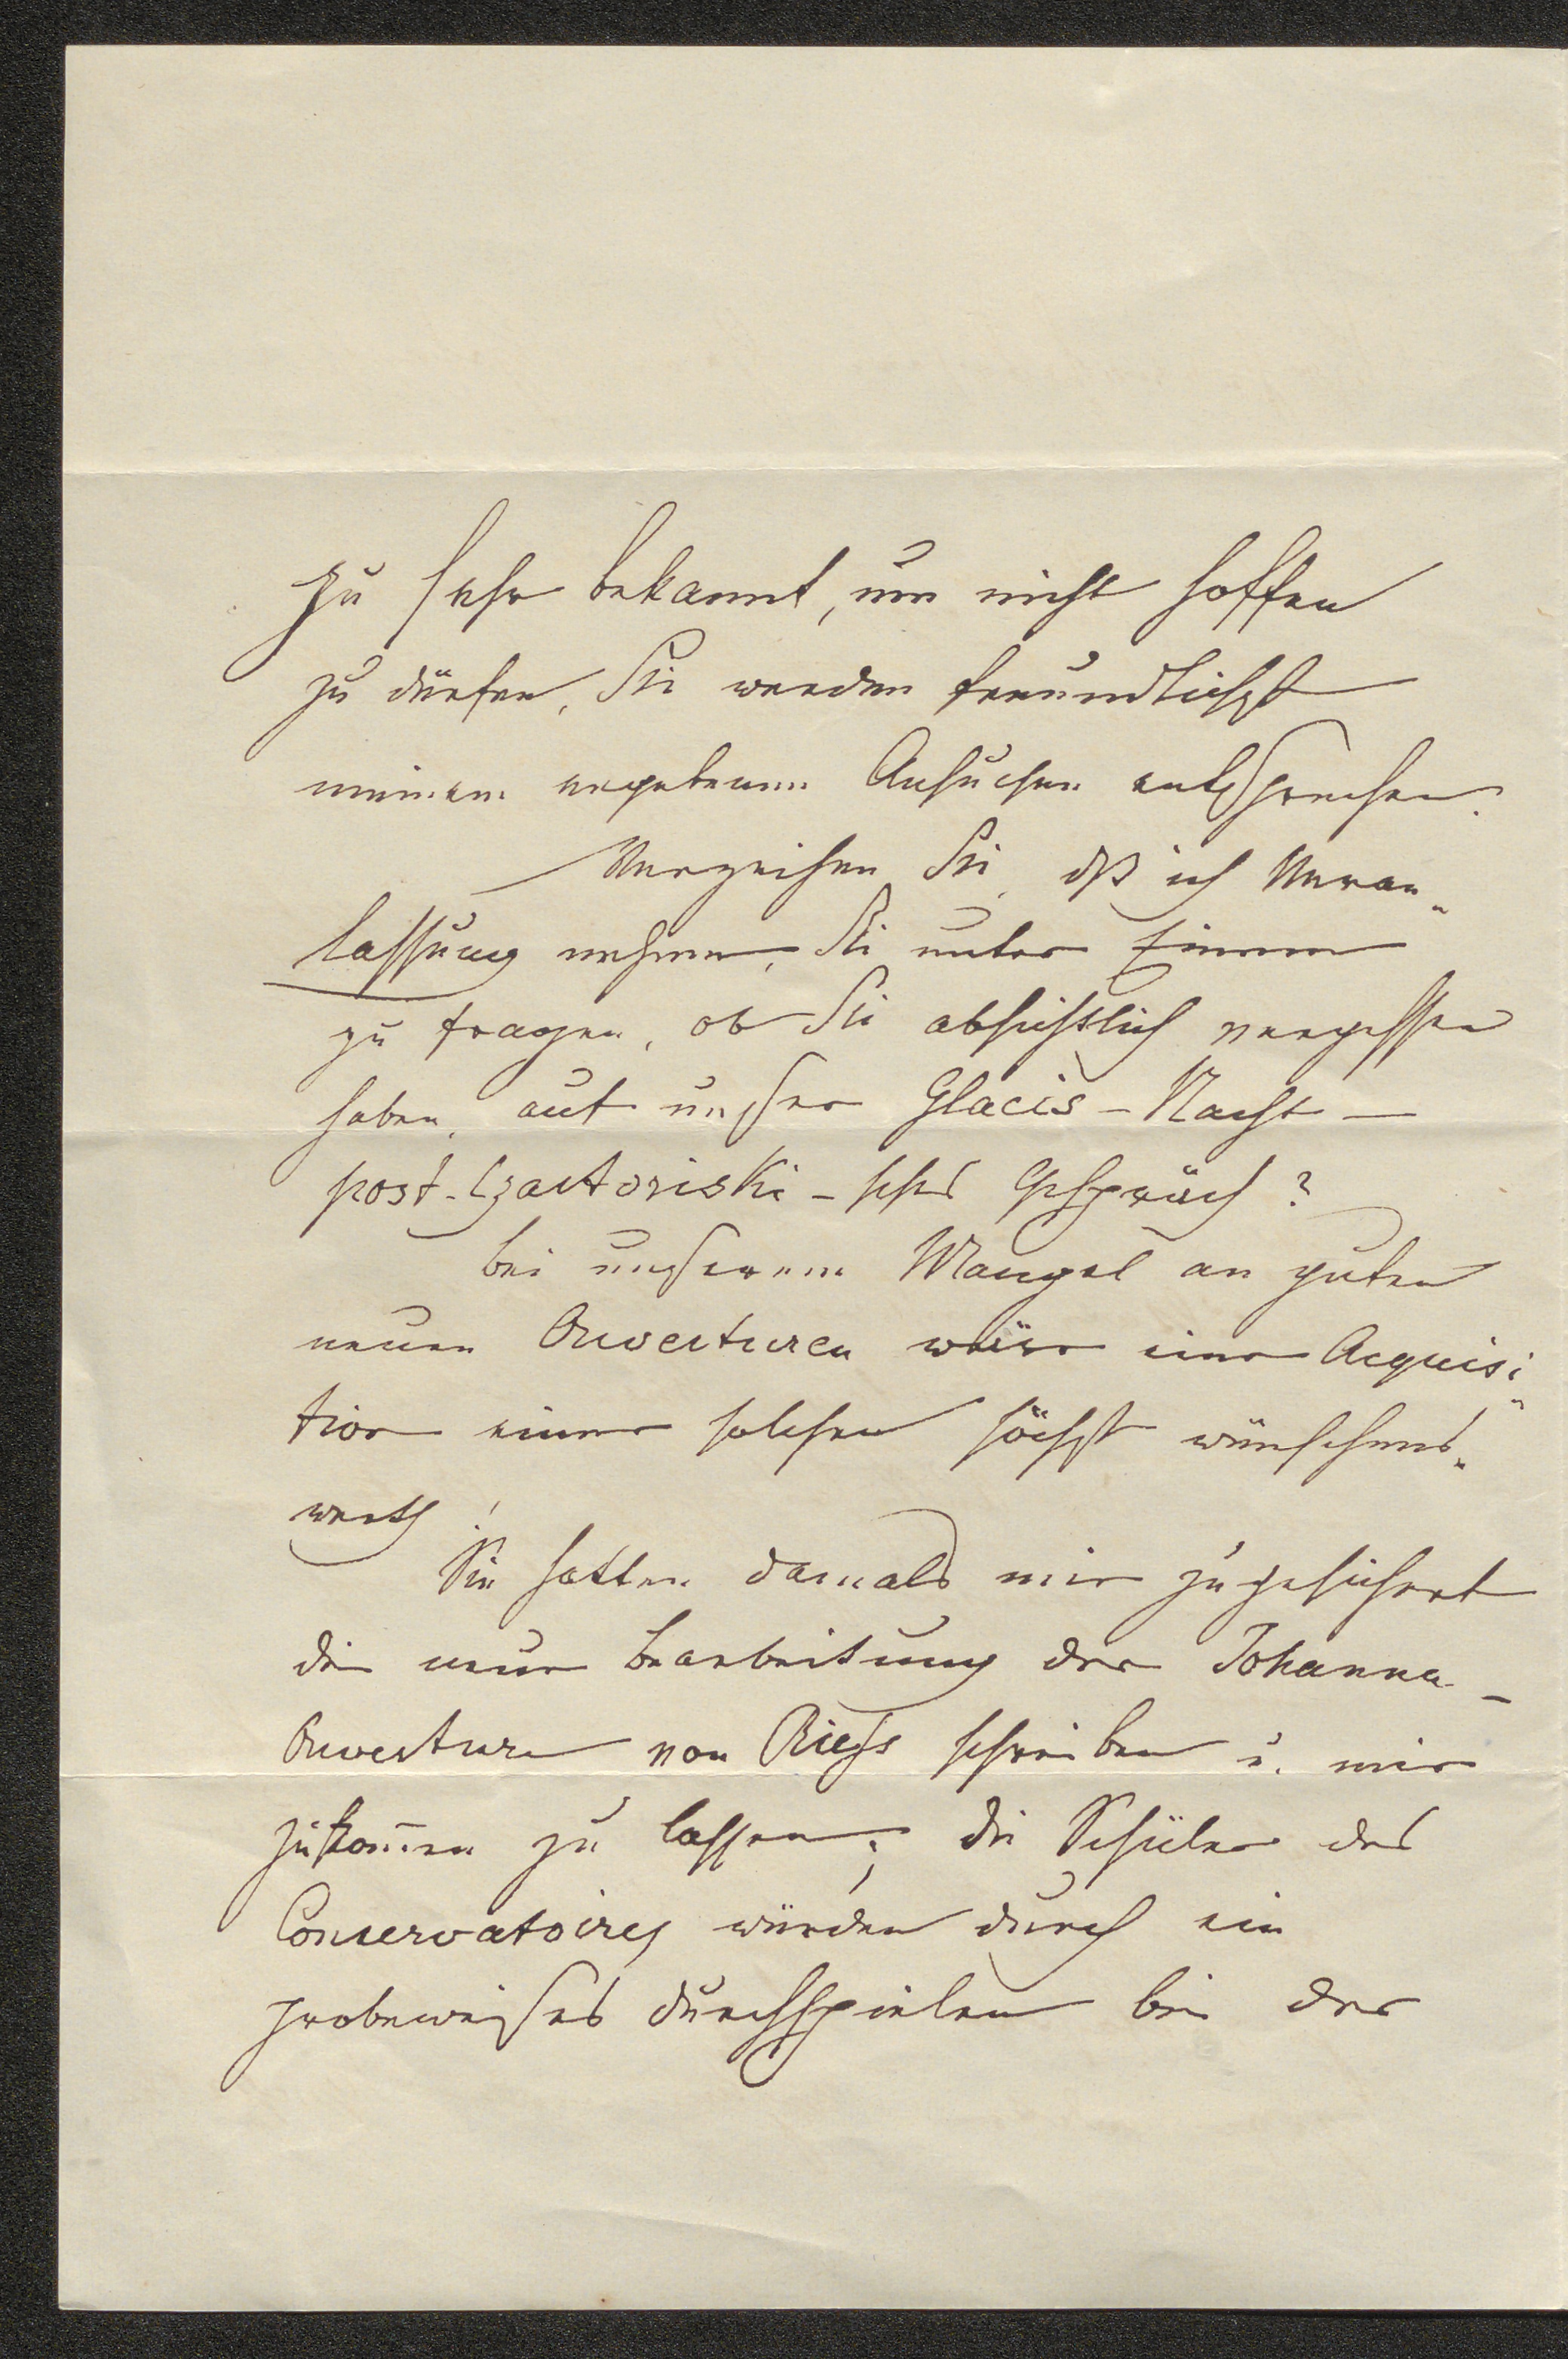 zu sehr bekannt, um nicht hoffen
zu dürfen, Sie werden freundlichst
meinem ergebenen Ansuchen entsprechen.
Verzeihen Sie, dß ich Veran„
lassung nehme, Sie unter Einem
zu fragen, ob Sie absichtlich vergessen
haben, auf unser Glacis-Nacht-
post-Czartoriski-sches Gespräch?
bei unserem Mangel an guten
neuen Ouverturen wäre eine Acquisi„
tion einer solchen höchst wünschens„
werth!
Sie hatten damals mir zugesichert
die neue Bearbeitung der Johanna-
Ouverture von schreiben u. mir
zukom̄en zu lassen; die Schüler des
Conservatoires würden durch ein
probeweises Durchspielen bei der